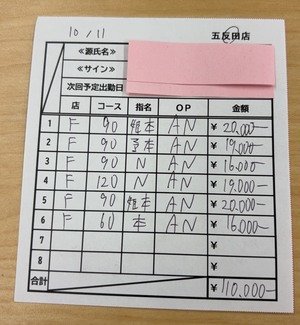 10/11 五反田店
≪源氏名≫
≪サイン≫
次回予定出勤日
店 コース 指名 OP 金額
1 F 90 姫本 AN ¥20,000-
2 F 90 予本 AN ¥19,000-
3 F 90 N AN ¥16,000-
4 F 120 N AN ¥19,000-
5 F 90 姫本 AN ¥20,000-
6 F 60 本 AN ¥16,000-
7 ¥
8 ¥
合計 ¥110,000-